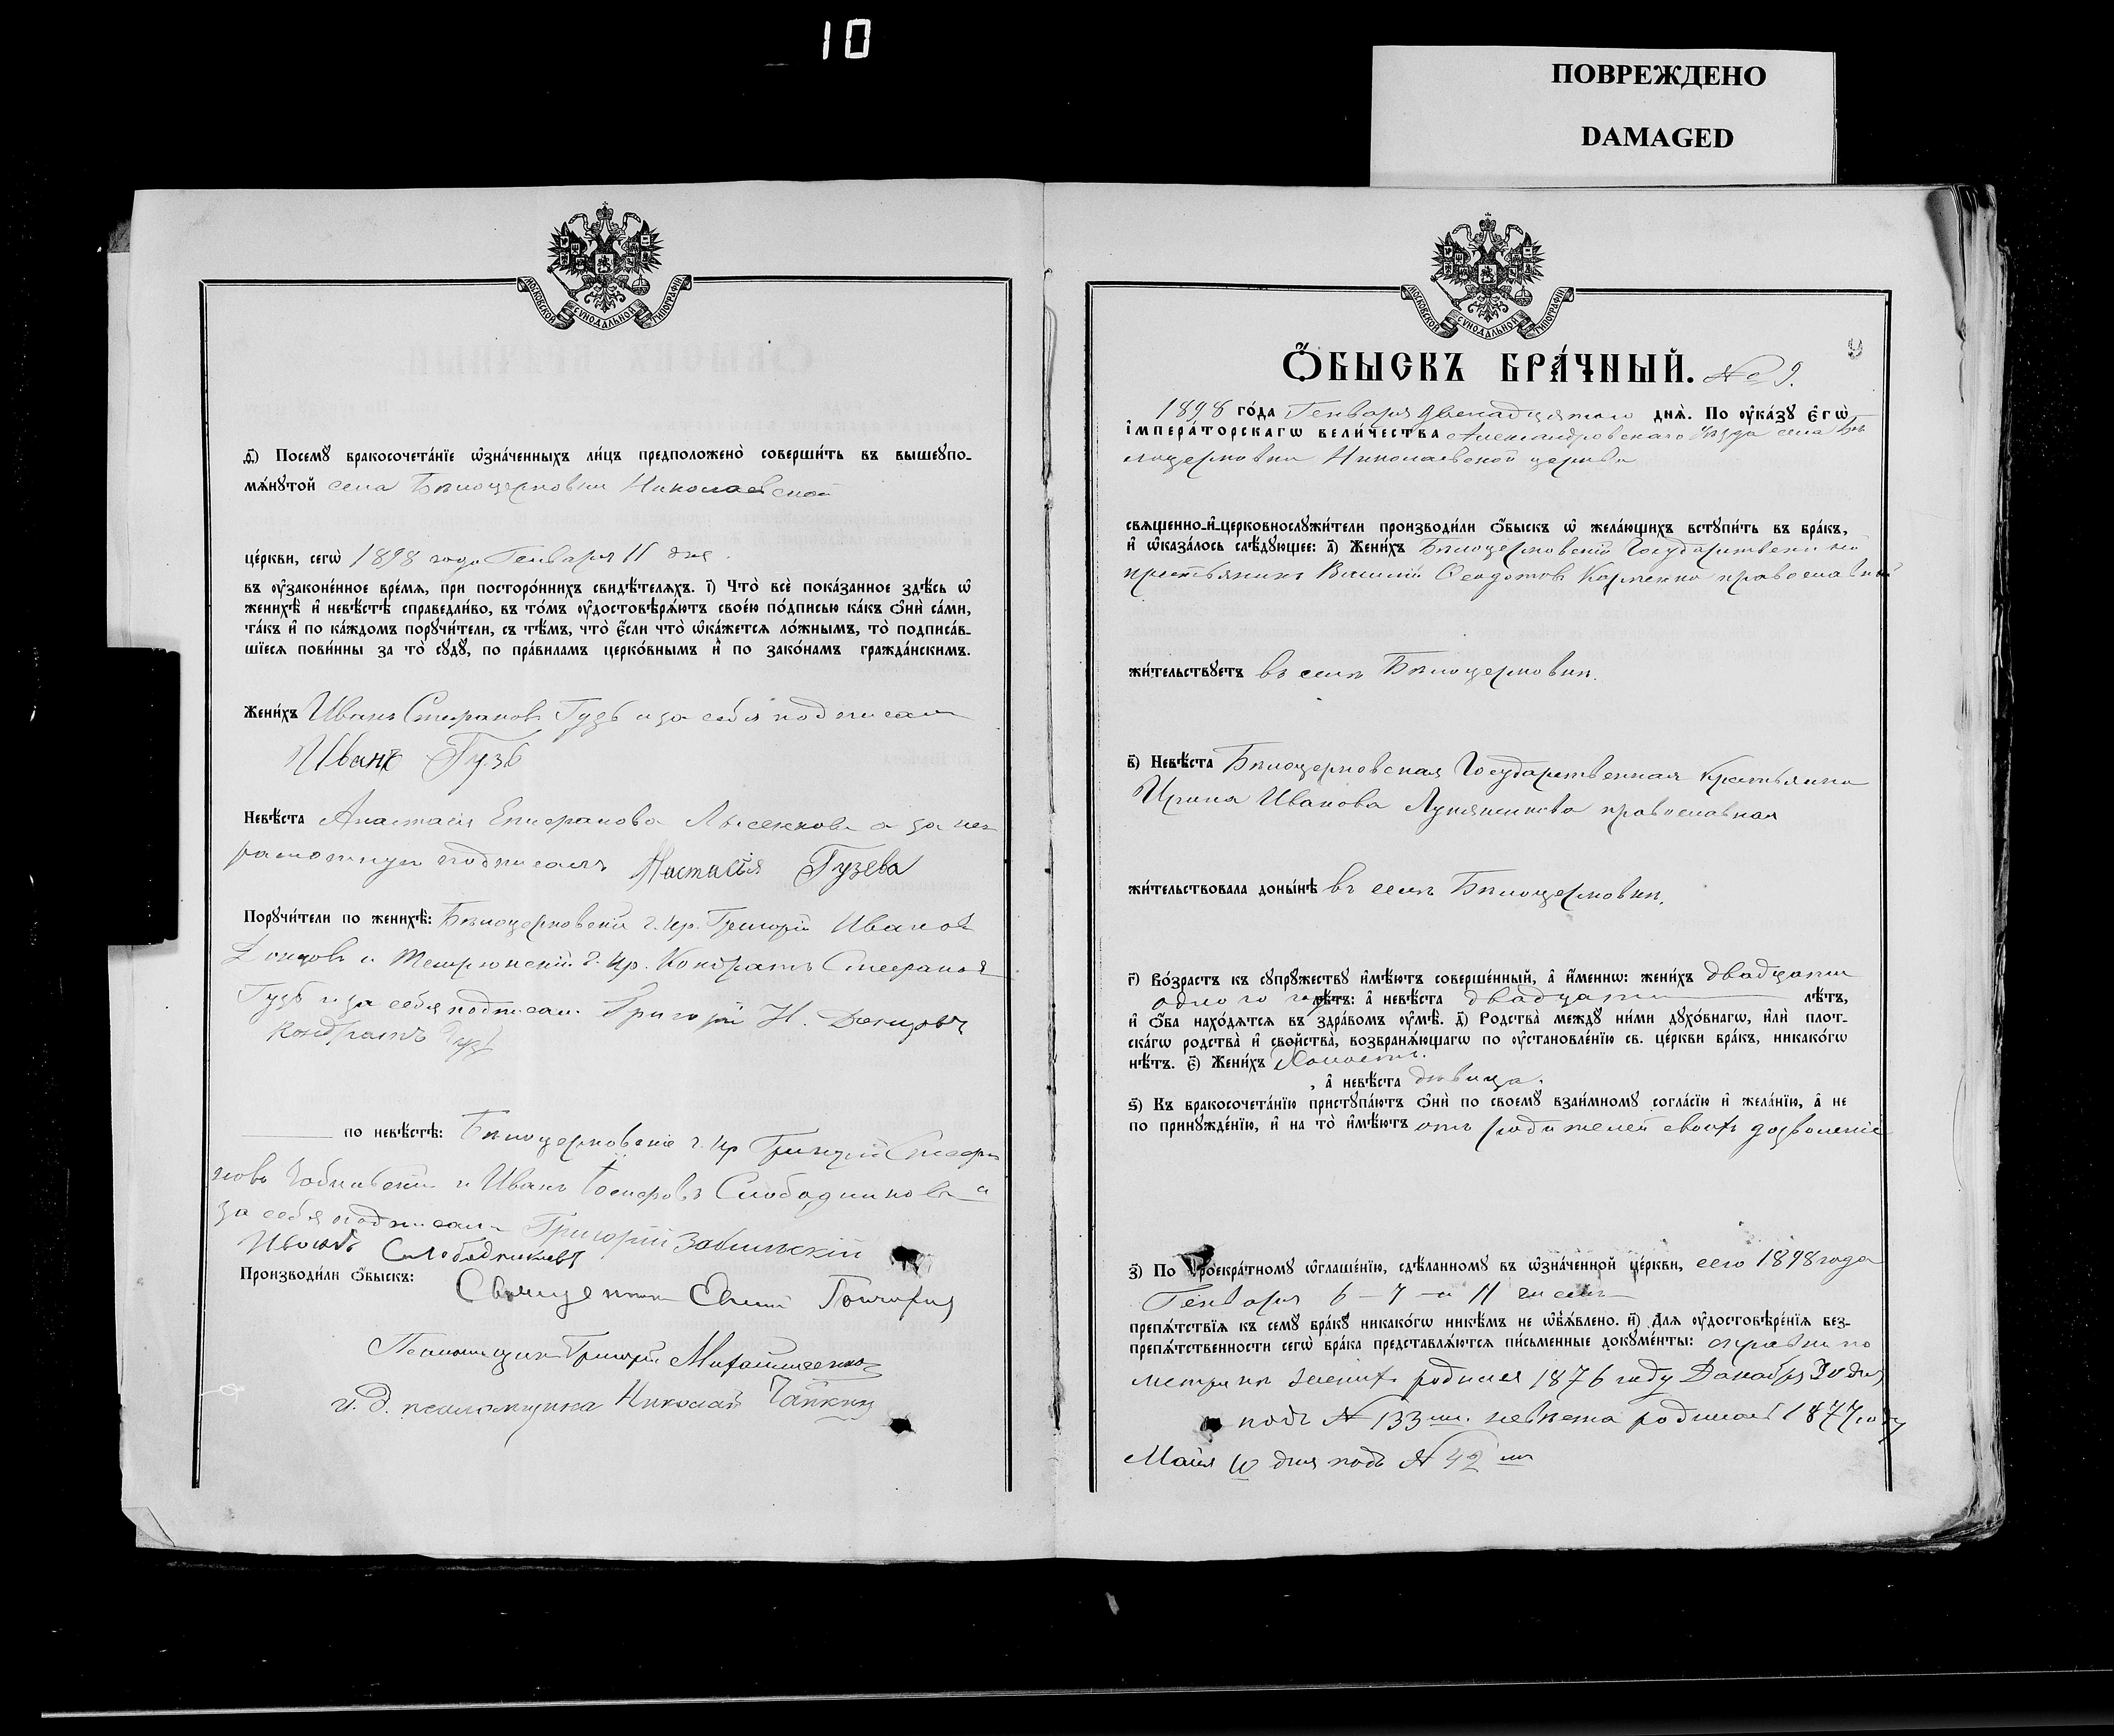 10
ПОВРЕЖДЕНО
DAMAGED
МОСКОВСКОЙ СѴНОДАЛЬНОЙ ТИПОГРАФІИ
Посемꙋ̀ бракосочета́нїе ѡ҆зна́ченныхъ ли́цъ предположено̀ соверши́ть въ вышеупо-
мѧ́нутой села Бѣлоцерковки Николаевской
це́ркви, сегѡ̀ 1898 года Генваря 11 дня.
въ ᲂу҆зако́не́нное вре́мѧ, при посторо́ннихъ свидѣ́телѧхъ. і҃) Что̀ всѐ пока́занное здѣ́сь ѡ҆
женихѣ̀ и҆ невѣ́стѣ справедли́во, въ то́мъ ᲂу҆достовѣрѧ́ютъ свое́ю по́дписью ка́къ ѻ҆нѝ са́ми,
та́къ и҆ по ка́ждомъ порꙋчи́тели, съ тѣ́мъ, что̀ є҆́сли что̀ ѡ҆ка́жетсѧ ло́жнымъ, то̀ подписа́в-
шїесѧ пови́нны за то̀ сꙋдꙋ̀, по пра́виламъ церко́внымъ и҆ по зако́намъ гражда́нскимъ.
Жени́хъ Иванъ Стефановъ Гузь а за себя подписалъ
Иванъ Гузь
Невѣ́ста Анастасія Епифанова Лысенкова а за не
грамотную подписалъ Настасія Гузева
Порꙋчи́тели по женихѣ̀: Бѣлоцерковскій г. кр. Григорій Ивановъ
Донцовъ и г. кр. Кондратъ Стефановъ
Гузь и за себя подписали Григорій И. Донцовъ
Кондратъ Гузь
по невѣ́стѣ: Бѣлоцерковскіе г. кр Григорій Стефа
новъ и Иванъ Слободчиковъ а
за себя подписали Григорій Забильскій
Иванъ Слободчиковъ
Производи́ли ѻ҆́быскъ: Священникъ Гончаровъ
Псаломщикъ Григорій Михайличенко
и. д. псаломщика Николай Чапкинъ
МОСКОВСКОЙ СѴНОДАЛЬНОЙ ТИПОГРАФІИ
9
Ѻ҆́БЫСКЪ БРА́ЧНЫЙ. № 9.
1898 го́да Генваря двенадцятого днѧ̀. По ᲂу҆ка́зꙋ є҆гѡ̀
і҆мпера́торскагѡ вели́чества Александровскаго уѣзда села Бѣ
лоцерковки Николаевской церкви
свѧще́нно-и҆-церковнослꙋжи́тели производи́ли ѻ҆́быскъ ѡ҆ жела́ющихъ встꙋпи́ть въ бра́къ,
и҆ ѡ҆каза́лось слѣ́дꙋющее: а҃) Жени́хъ Бѣлоцерковскій Государственный
крестьянинъ Василій Феодотовъ Карпенко православный
жи́тельствꙋетъ въ селѣ Бѣлоцерковкѣ.
в҃) Невѣ́ста Бѣлоцерковская Государственная крестьянка
Ирина Иванова Лукяненкова православная
жи́тельствовала доны́нѣ въ селѣ Бѣлоцерковкѣ.
г҃) Во́зрастъ къ сꙋпрꙋ́жествꙋ и҆мѣ́ютъ соверше́нный, а҆ и҆́меннѡ: жени́хъ двадцати
одного го лѣ́тъ: а҆ невѣ́ста двадцати лѣ́тъ,
и҆ ѻ҆́ба нахо́дѧтсѧ въ здра́вомъ ᲂу҆мѣ̀. д҃) Родства̀ междꙋ̀ ни́ми дꙋхо́внагѡ, и҆лѝ плот-
ска́гѡ родства̀ и҆ сво́йства̀, возбранѧ́ющагѡ по ᲂу҆становле́нїю св. це́ркви бра́къ, никако́гѡ
нѣ́тъ. є҃) Жени́хъ Холостъ.
, а҆ невѣ́ста дѣвица.
ѕ҃) Къ бракосочета́нїю пристꙋпа́ютъ ѻ҆нѝ по своемꙋ̀ взаи́мномꙋ согла́сїю и҆ жела́нїю, а҆ не
по принꙋжде́нїю, и҆ на то̀ и҆мѣ́ютъ отъ родителей своихъ дозволеніе
з҃) По троекра́тномꙋ ѡ҆глаше́нїю, сдѣ́ланномꙋ въ ѡ҆зна́ченной це́ркви, сего 1898 года
Генваря 6 – 7 – и 11 чиселъ
препѧ́тствїѧ къ семꙋ̀ бра́кꙋ никако́гѡ никѣ́мъ не ѡ҆б̾ѧ́влено. и҃) Длѧ ᲂу҆достовѣ́ре́нїѧ без-
препѧ́тственности сегѡ̀ бра́ка представлѧ́ютсѧ пи́сьменные докꙋме́нты: справки по
метрикѣ женихъ родился 1876 году Декабря 30 дня
подъ № 133 мъ. невѣста родилась 1877 году
Маія 10 дня подъ № 42 мъ